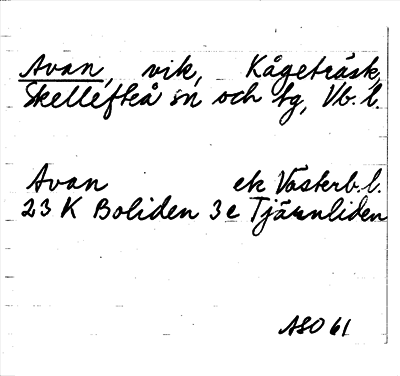 Avan, vik, Kågeträsk,
Skellefteå sn och tg, Vb. l.
Avan ek Västerb. l.
23 K Boliden 3e Tjärnliden
ASO 61